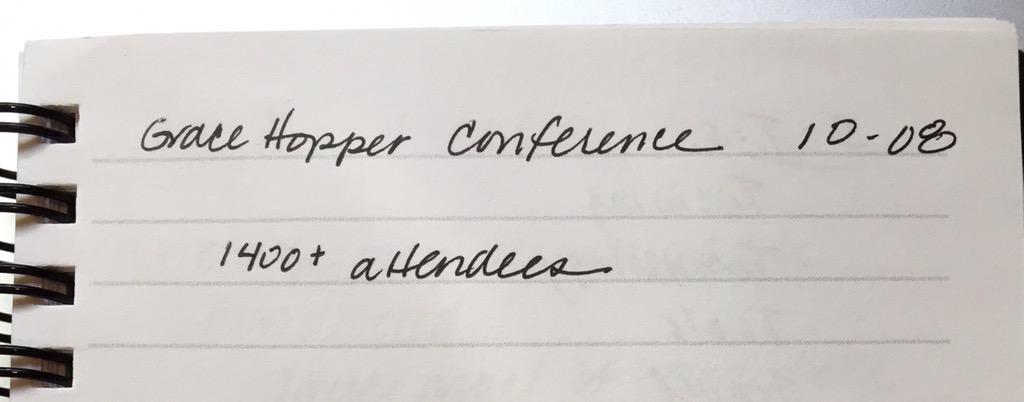 Grace Hopper Conference 10-08
1400+ attendees